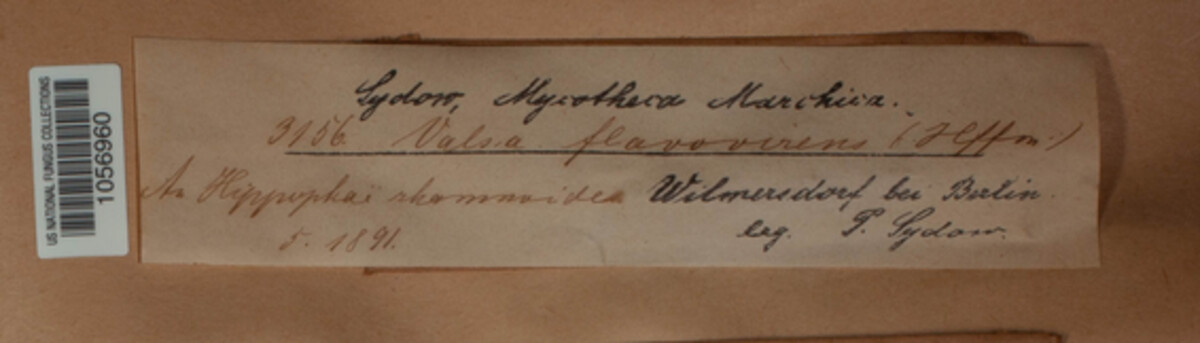 US NATIONAL FUNGUS COLLECTIONS
1056960
Sydow, Mycotheca Marchica.
3156 Valsa flavovirens (Hffm.)
An Hippophaë rhamnoides Wilmersdorf bei Berlin.
5. 1891. leg. P. Sydow.